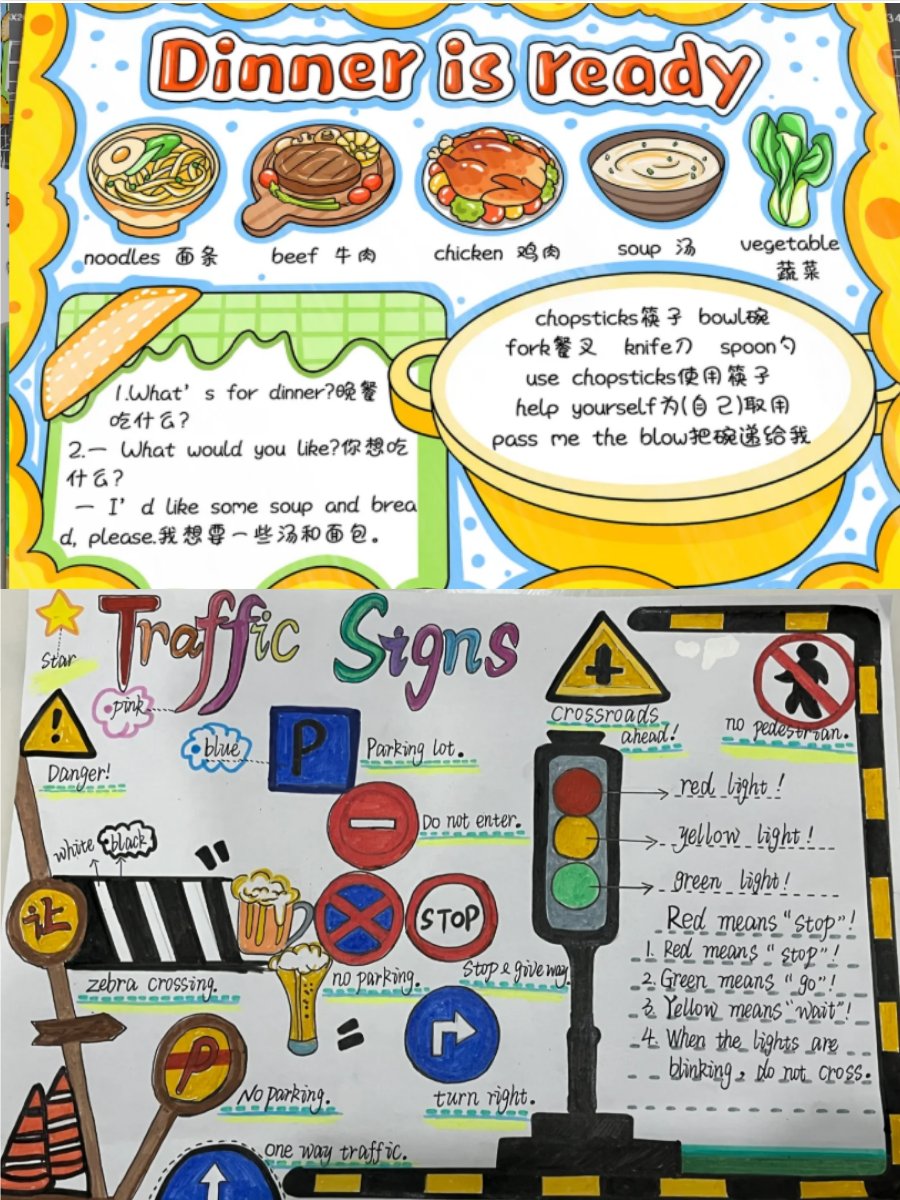 Dinner is ready
noodles 面条
beef 牛肉
chicken 鸡肉
soup 汤
vegetable
蔬菜
1.What's for dinner?晚餐
吃什么?
2.一 What would you like?你想吃
什么?
一 I'd like some soup and brea
d, please.我想要一些汤和面包。
chopsticks筷子 bowl碗
fork餐叉 knife刀 spoon勺
use chopsticks使用筷子
help yourself为(自己)取用
pass me the blow把碗递给我
Traffic Signs
star
pink
blue
P
Parking lot.
Crossroads
ahead!
no pedestrian.
Danger!
Do not enter.
white
black
让
STOP
zebra crossing.
no parking.
Stop & give way
P
No parking.
turn right.
one way traffic.
red light!
yellow light!
green light!
Red means "stop"!
1. Red means "stop"!
2. Green means "go"!
3. Yellow means "wait"!
4. When the lights are
blinking, do not cross.